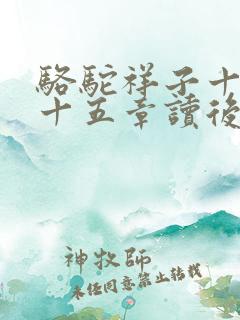 駱駝祥子十
十五章讀後
神牧師
未任同意禁止轉載